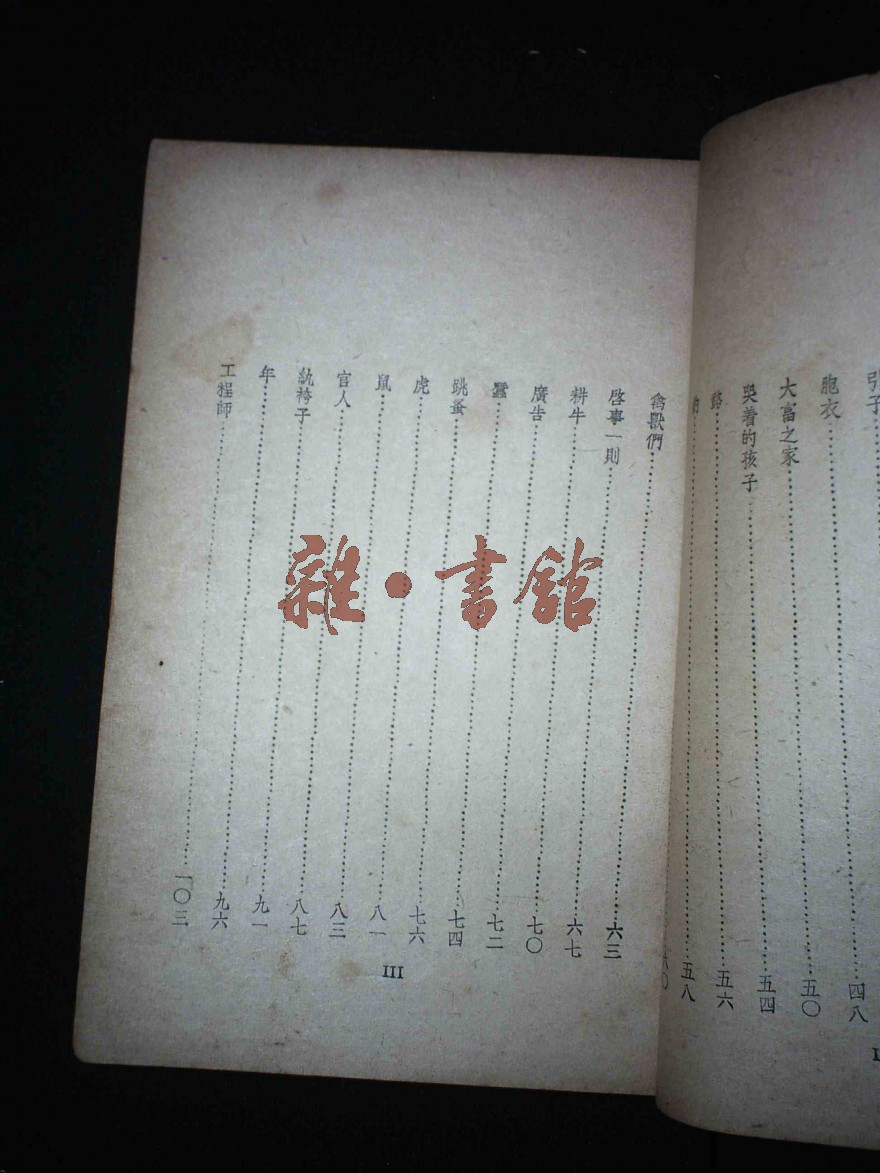 引子
胞衣……四八
大富之家……五〇
哭着的孩子……五四
……五六
……五八
六〇
禽獸們……六三
啓事一則……六七
耕牛……七〇
廣告……七二
蠶……七四
跳蚤……七六
虎……八一
鼠……八三
官人……八七
紈袴子……九一
年……九六
工程師……一〇三
III
雜·書館